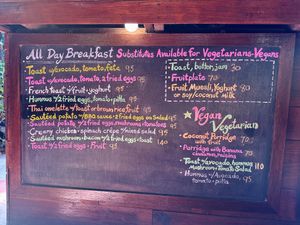 All Day Breakfast Substitutes Available for Vegetarians-Vegans
• Toast w/avocado, tomato, feta 95
• Toast w/avocado, tomato, 2 fried eggs 95
• French Toast w/Fruit + yoghurt 95
• Hummus w/2 fried eggs, tomato + pitta 95
• Thai omelette w/toast or brown rice + fruit 95
• Sautéed potato w/BBQ sauce + 2 fried eggs on Salad 95
• Sautéed potato w/2 fried eggs, mushrooms + tomatoes 95
• Creamy chicken + spinach crêpe w/mixed salad 95
• Sautéed mushroom w/bacon w/2 fried eggs + toast 140
• Toast w/2 fried eggs + Fruit 95
• Toast, butter, jam 30
• Fruit plate 70
• Fruit Muesli, Yoghurt 80
or soy/coconut milk
Vegan
Vegetarian
• Coconut Porridge 70
with fruit
• Porridge with Banana 70
cinnamon, raisins
• Toast w/avocado, hummus 110
Mushroom + Tomato Salad
• Hummus w/Avocado, 95
tomato + pitta